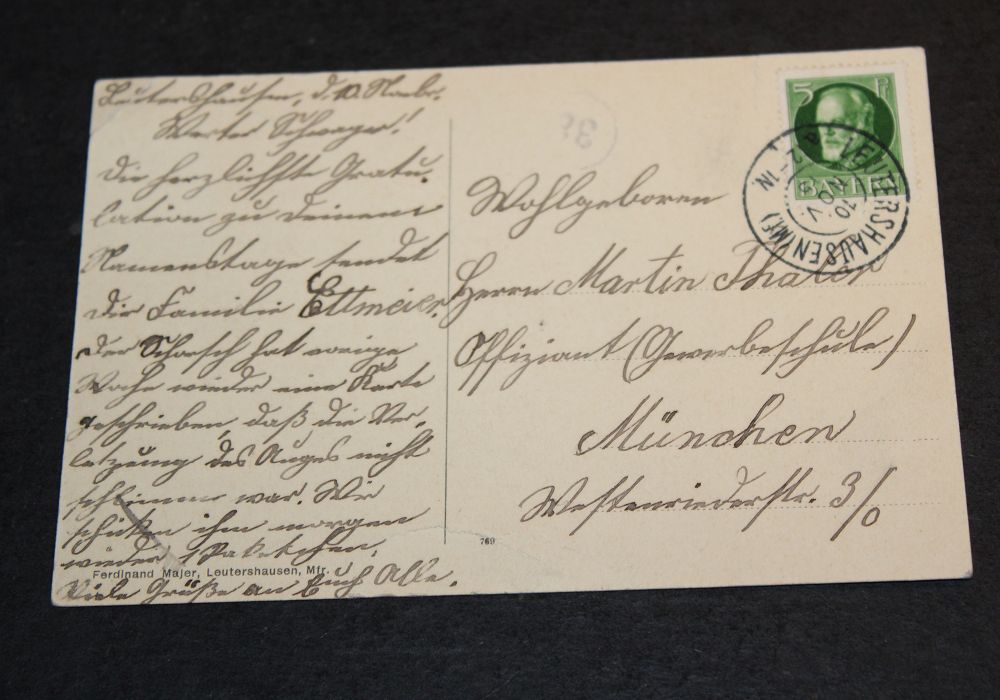 Leutershausen, d. 10. Novbr.
Werter Schwager!
Die herzlichste Gratu-
lation zu Deinem
Namenstage sendet
die Familie Ettmeier.
Der Schorsch hat vorige
Woche wieder eine Karte
geschrieben, daß die Ver-
letzung des Auges nicht
schlimmer war. Wir
schicken ihm morgen
wieder 1 Paketchen.
Viele Grüße an Euch Alle.
Ferdinand Majer, Leutershausen, Mfr.
769
5 Pf
BAYERN
LEUTERSHAUSEN (MF.)
10. NOV.
Wohlgeboren
Herrn Martin Thaler
Offiziant (Gewerbeschule)
München
Westenriederstr. 3/0